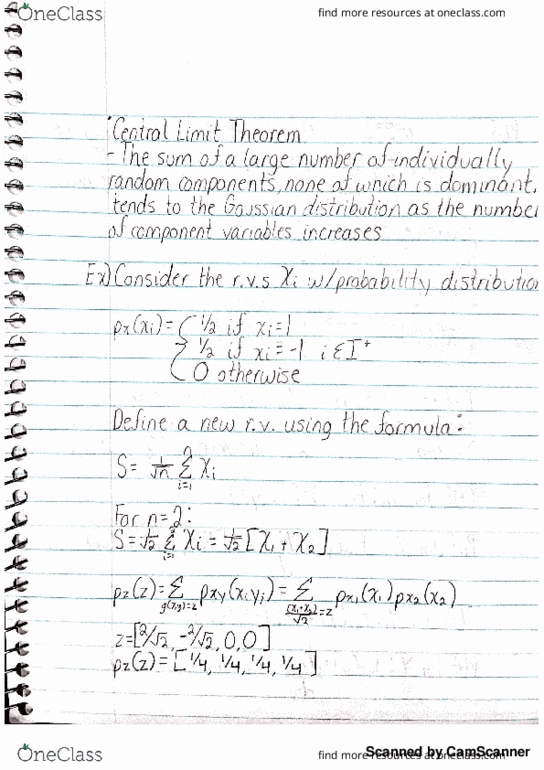 OneClass
find more resources at oneclass.com
Central Limit Theorem
- The sum of a large number of individually
random components, none of which is dominant,
tends to the Gaussian distribution as the number
of component variables increases
Ex) Consider the r.v.s Xi w/probability distribution
px(xi) = { 1/2 if xi = 1
1/2 if xi = -1 i ε I⁺
0 otherwise
Define a new r.v. using the formula:
S = 1/√n Σ(i=1 to n) Xi
For n=2:
S = 1/√2 Σ(i=1 to 2) Xi = 1/√2 [X1 + X2]
pz(z) = Σ g(x,y)=z pxy(xi yi) = Σ (x1+x2)/√2=z px1(x1) px2(x2)
z = [2/√2, -2/√2, 0, 0]
pz(z) = [1/4, 1/4, 1/4, 1/4]
OneClass
find more resources at oneclass.com
Scanned by CamScanner